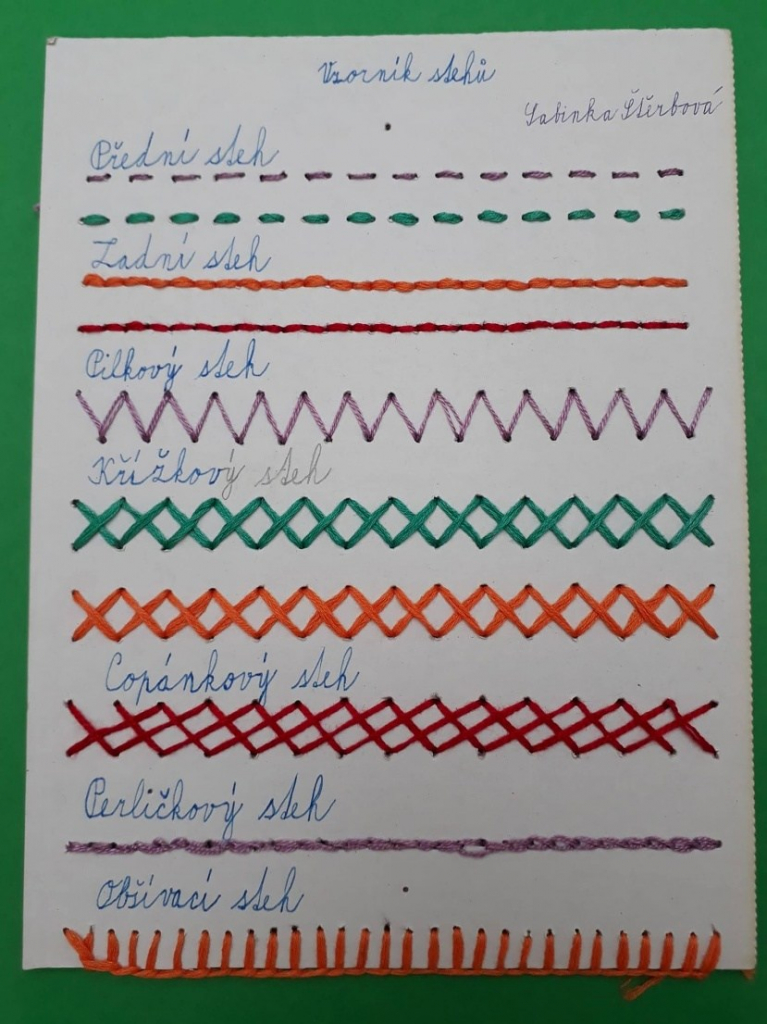 Vzorník stehů
Sabinka Štěrbová
Přední steh
Zadní steh
Pilkový steh
Křížkový steh
Copánkový steh
Perličkový steh
Obšívací steh